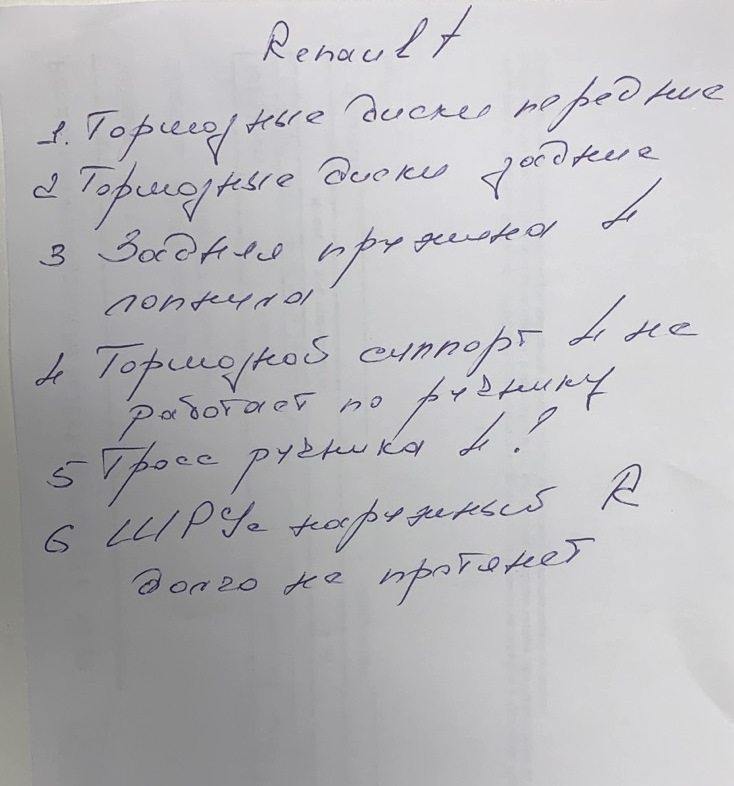 Renault
1. Тормозные диски передние
2 Тормозные диски задние
3 Задняя пружина L
лопнула
4 Тормозной суппорт L не
работает по ручнику
5 Тросс ручника L ?
6 ШРУс наружный R
долго не протянет